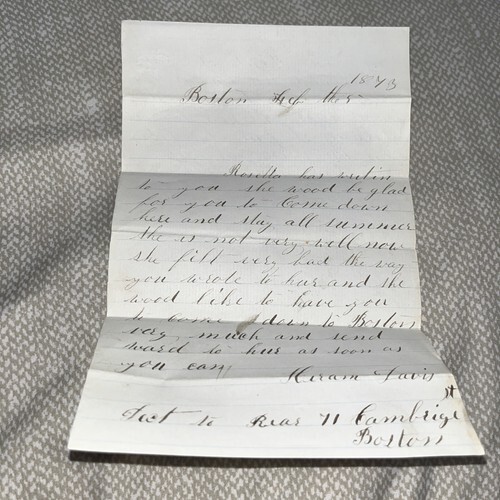 1873
Boston Feb the
Rosella has writin
to you she wood be glad
for you to Come down
here and stay all summer
she is not very well now
she filt very bad the way
you wrote to hur and she
wood like to have you
to Come down to Boston
very much and send
ward to hur as soon as
you can
Hiram Davis
st
to Rear 71 Cambrige
Boston